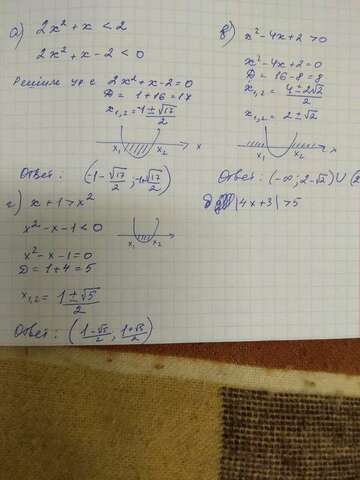 а) 2x² + x < 2
2x² + x - 2 < 0
Решим ур-е 2x² + x - 2 = 0
D = 1 + 16 = 17
x₁,₂ = -1 ± √17 / 2
x₁ x₂ x
Ответ: (-1 - √17 / 2, -1 + √17 / 2)
в) x² - 4x + 2 > 0
x² - 4x + 2 = 0
D = 16 - 8 = 8
x₁,₂ = 4 ± 2√2 / 2
x₁,₂ = 2 ± √2
x₁ x₂ x
Ответ: (-∞, 2 - √2) ∪ (2
г) x + 1 > x²
x² - x - 1 < 0
x² - x - 1 = 0
D = 1 + 4 = 5
x₁,₂ = 1 ± √5 / 2
Ответ: (1 - √5 / 2, 1 + √5 / 2)
|4x + 3| > 5